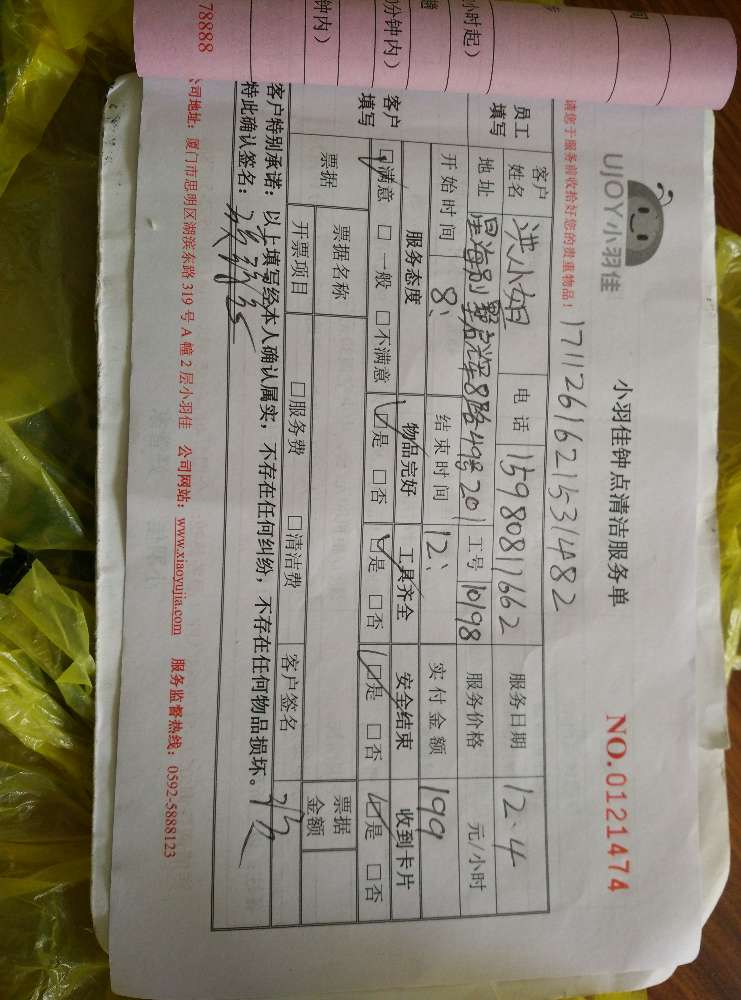 间
小时起）
0分钟内）
钟内）
78888
UJOY小羽佳
小羽佳钟点清洁服务单
NO.0121474
请您于服务前收拾好您的贵重物品！
1711261621531482
员工填写
客户姓名 洪小姐 电话 15980817662 服务日期 12.4
地址 49号201 工号 10198 服务价格 元/小时
开始时间 8: 结束时间 12: 实付金额 199
客户填写
服务态度 物品完好 工具齐全 安全结束 收到卡片
☑满意 □一般 □不满意 ☑是 □否 ☑是 □否 ☑是 □否 ☑是 □否
票据 票据名称 票据金额
开票项目 □服务费 □清洁费 客户签名
客户特别承诺：以上填写经本人确认属实，不存在任何纠纷，不存在任何物品损坏。
特此确认签名：
公司地址：厦门市思明区湖滨东路319号A幢2层小羽佳 公司网站：www.xiaoyujia.com 服务监督热线：0592-5888123